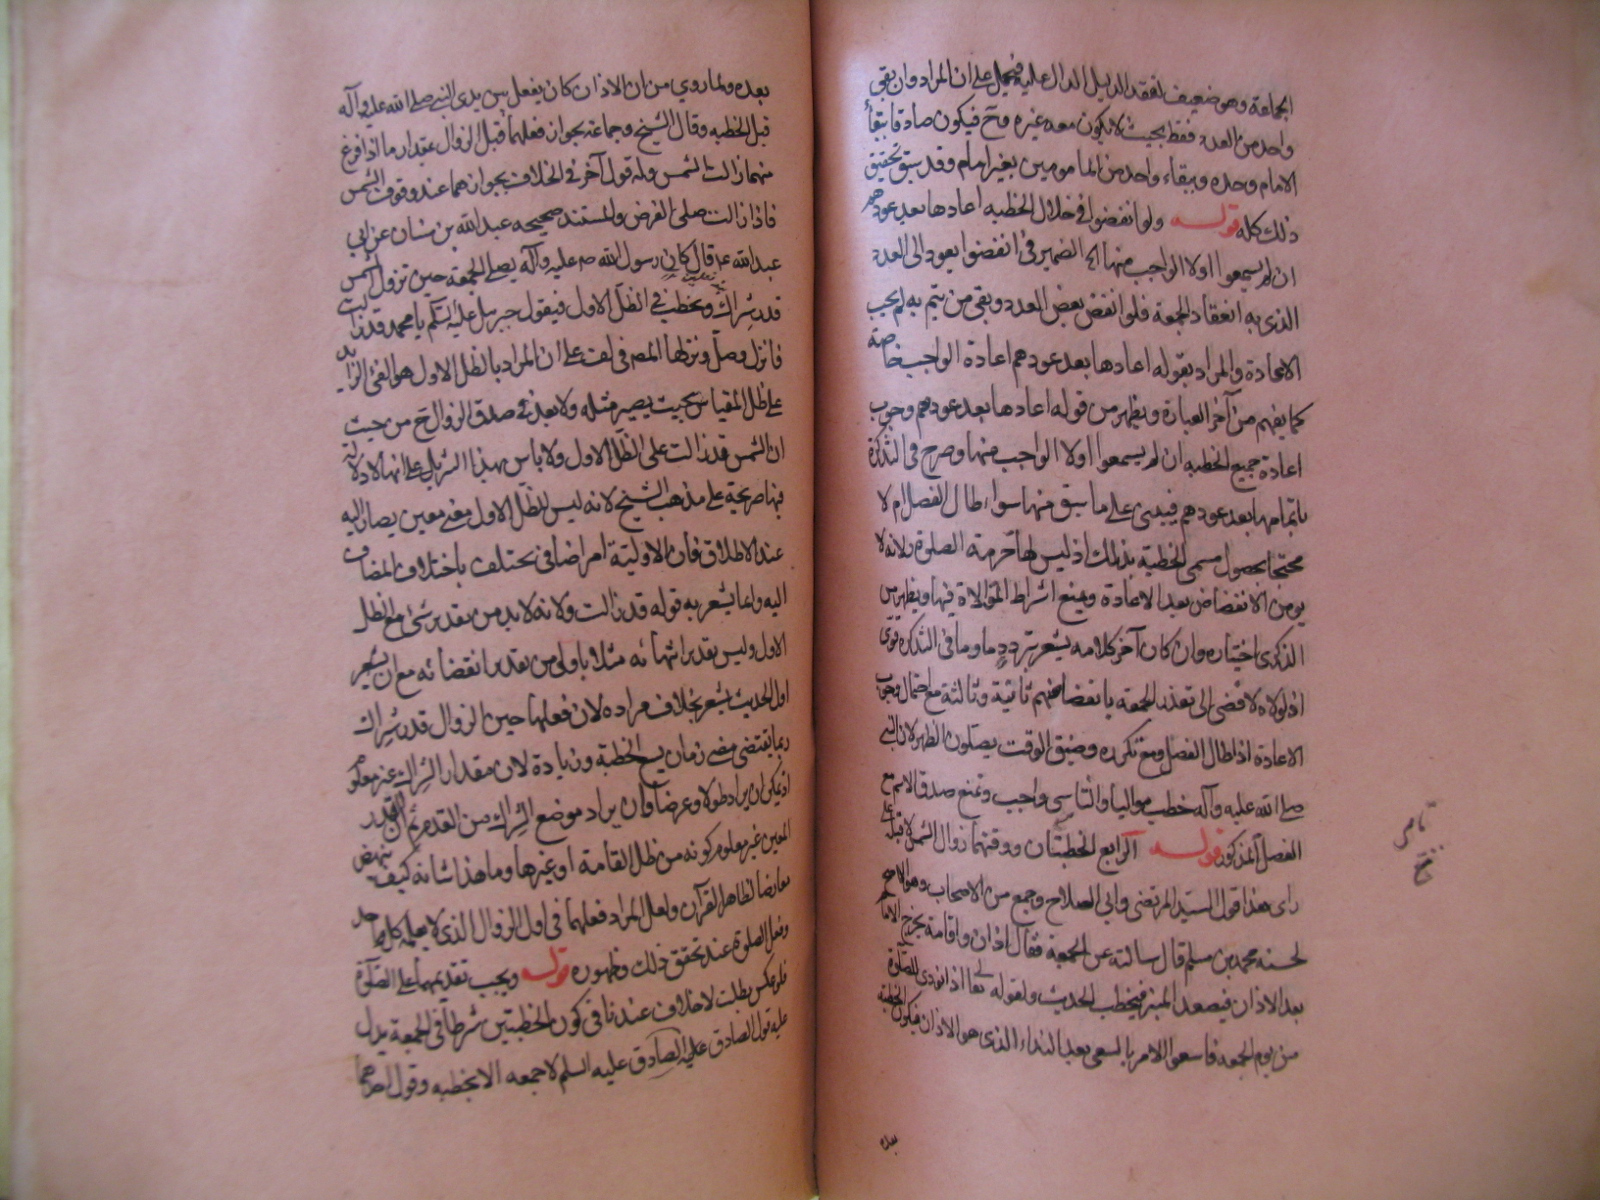 الجماعة وهو ضعيف لفقد الدليل الدال عليه فيحمل على ان المراد وان بقى
واحد من العدد فقط بحيث لا يكون معه غيره وح فيكون صادقا ببقأ
الامام وحده وببقاء واحد من المامومين بغير امام وقد سبق تحقيق
ذلك كله قوله ولو انفضوا في خلال الخطبة اعادها بعد عودهم
ان لم يسمعوا اولا الواجب منها الضمير في انفضوا يعود الى العدد
الذي به انعقاد الجمعة فلو انفض بعض العدد وبقى من يتم به لم يجب
الاعادة والمراد بقوله اعادها بعد عودهم اعادة الواجب خاصة
كما يفهم من آخر العبارة ويظهر من قوله اعادها بعد عودهم وجوب
اعادة جميع الخطبة ان لم يسمعوا اولا الواجب منها وصرح في التذكرة
باتمامها بعد عودهم فيبنى على ما سبق منها سواء طال الفصل ام لا
محتجا بحصول مسمى الخطبة بذلك اذ ليس لها حرمة الصلوة ولانه لا
يومن الانفضاض بعد الاعادة ويمنع اشراط الموالاة فيها ويظهر من
الذكرى اختياره وان كان آخر كلامه يشعر بتردد ما وما في التذكرة قوى
اذ لولاه لافضى الى تعذر الجمعة بانفضاضهم ثانية وثالثة مع احتمال وجوب
الاعادة اذا طال الفصل ومع تكرره وضيق الوقت يصلون الظهر لان النبي
صلى الله عليه وآله خطب مواليا والتاسي واجب وتمنع صدق الاسم مع
الفصل المذكور قوله الرابع الخطبتان ووقتهما زوال الشمس لا قبله على
راى هذا قول السيد المرتضى وابي الصلاح وجمع من الاصحاب وهو الاصح
لحسنة محمد بن مسلم قال سالته عن الجمعة فقال اذان واقامة يخرج الامام
بعد الاذان فيصعد المنبر فيخطب الحديث ولقوله تعا اذا نودى للصلوة
من يوم الجمعه فاسعوا الامر بالسعى بعد النداء الذي هو الاذان فيكون الخطبة
بعده
بعده ولما روي من ان الاذان كان يفعل بين يدى النبي صلى الله عليه وآله
قبل الخطبه وقال الشيخ وجماعة بجواز فعلهما قبل الزوال بمقدار ما اذا فرغ
منهما زالت الشمس وله قول آخر في الخلاف بجوازهما عند وقوف الشمس
فاذا زالت صلى الفرض والمستند صحيحه عبد الله بن سنان عن ابي
عبد الله ع قال كان رسول الله ص عليه وآله يصلي الجمعة حين تزول الشمس
قدر شراك ويخطب في الظل الاول فيقول جبرئيل عليه السلم يا محمد قد زالت
فانزل وصل ونزلها المصه في لف على ان المراد بالظل الاول هو الفئ الزايد
على ظل المقياس بحيث يصير مثله ولا بعد في صدق الزوال ح من حيث
ان الشمس قد زالت على الظل الاول ولا باس بهذا التنزيل على انها لا دلالة
فيها صريحة على مذهب الشيخ لانه ليس للظل الاول معنى معين يصار اليه
عند الاطلاق فان الاولية امر اضافي تختلف باختلاف المضاف
اليه وانما يشعر به قوله قد زالت ولانه لا بد من تقدير شئ مع الظل
الاول وليس تقدير انتهائه مثلا باولى من تقدير انقضائه مع ان يشعر
اول الحديث يشعر بخلاف مراده لان فعلها حين الزوال قدر شراك
ربما يقتضى مضى زمان يسع الخطبة وزيادة لان مقدار الشراك غير معلوم
اذ يمكن ان يراد طولا وعرضا وان يراد موضع الشراك من القدم ثم ان القدر
المعين غير معلوم كونه من ظل القامة او غيرها وما هذا شانه كيف ينهض
معارضا لظاهر القرآن ولعل المراد فعلهما في اول الزوال الذي لا يعلمه كل احد
وفعل الصلوة عند تحقق ذلك وظهوره قوله ويجب تقديمهما على الصلوة
فلو عكس بطلت لا خلاف عندنا في كون الخطبتين شرطا في الجمعة يدل
عليه قول الصادق عليه الصادق عليه السلم لا جمعه الا بخطبه وقول احدهما